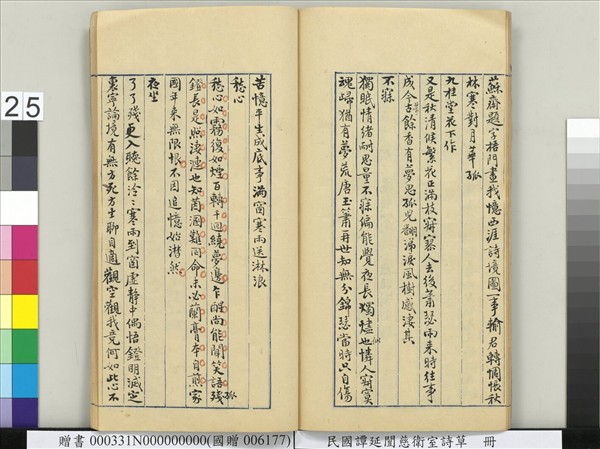 蘇齋題字梧門畫我憶西涯詩境圖一事輸君轉惆悵秋
林寒對月華孤
九桂堂花下作
又是秋清候繁花正滿枝寂寥人去後蕭瑟雨來時往事
成今古餘香有夢思孤兒翻涕淚風樹感淒其
不寐
獨眠情緒耐思量不寐偏能覺夜長燭燼也憐人寂寞
魂歸猶有夢荒唐玉簫再世知無分錦瑟當時只自傷
苦憶平生成底事滿窗寒雨送淋浪
愁心
愁心如霧復如煙百轉千回繞夢邊乍醒尚能聞笑語殘
孤
鐙長是照淒漣也知茵溷難同命未必蘭膏本自煎家
國年來無限恨不因追憶始潸然
夜坐
了了殘更入晚餘泠泠寒雨到窗虛靜中偶悟鐙明滅定
裏寧論境有無方死方生聊自適觀空觀我竟何如此心不
25
贈書 000331N000000000(國贈 006177)
民國譚延闓慈衛室詩草 冊